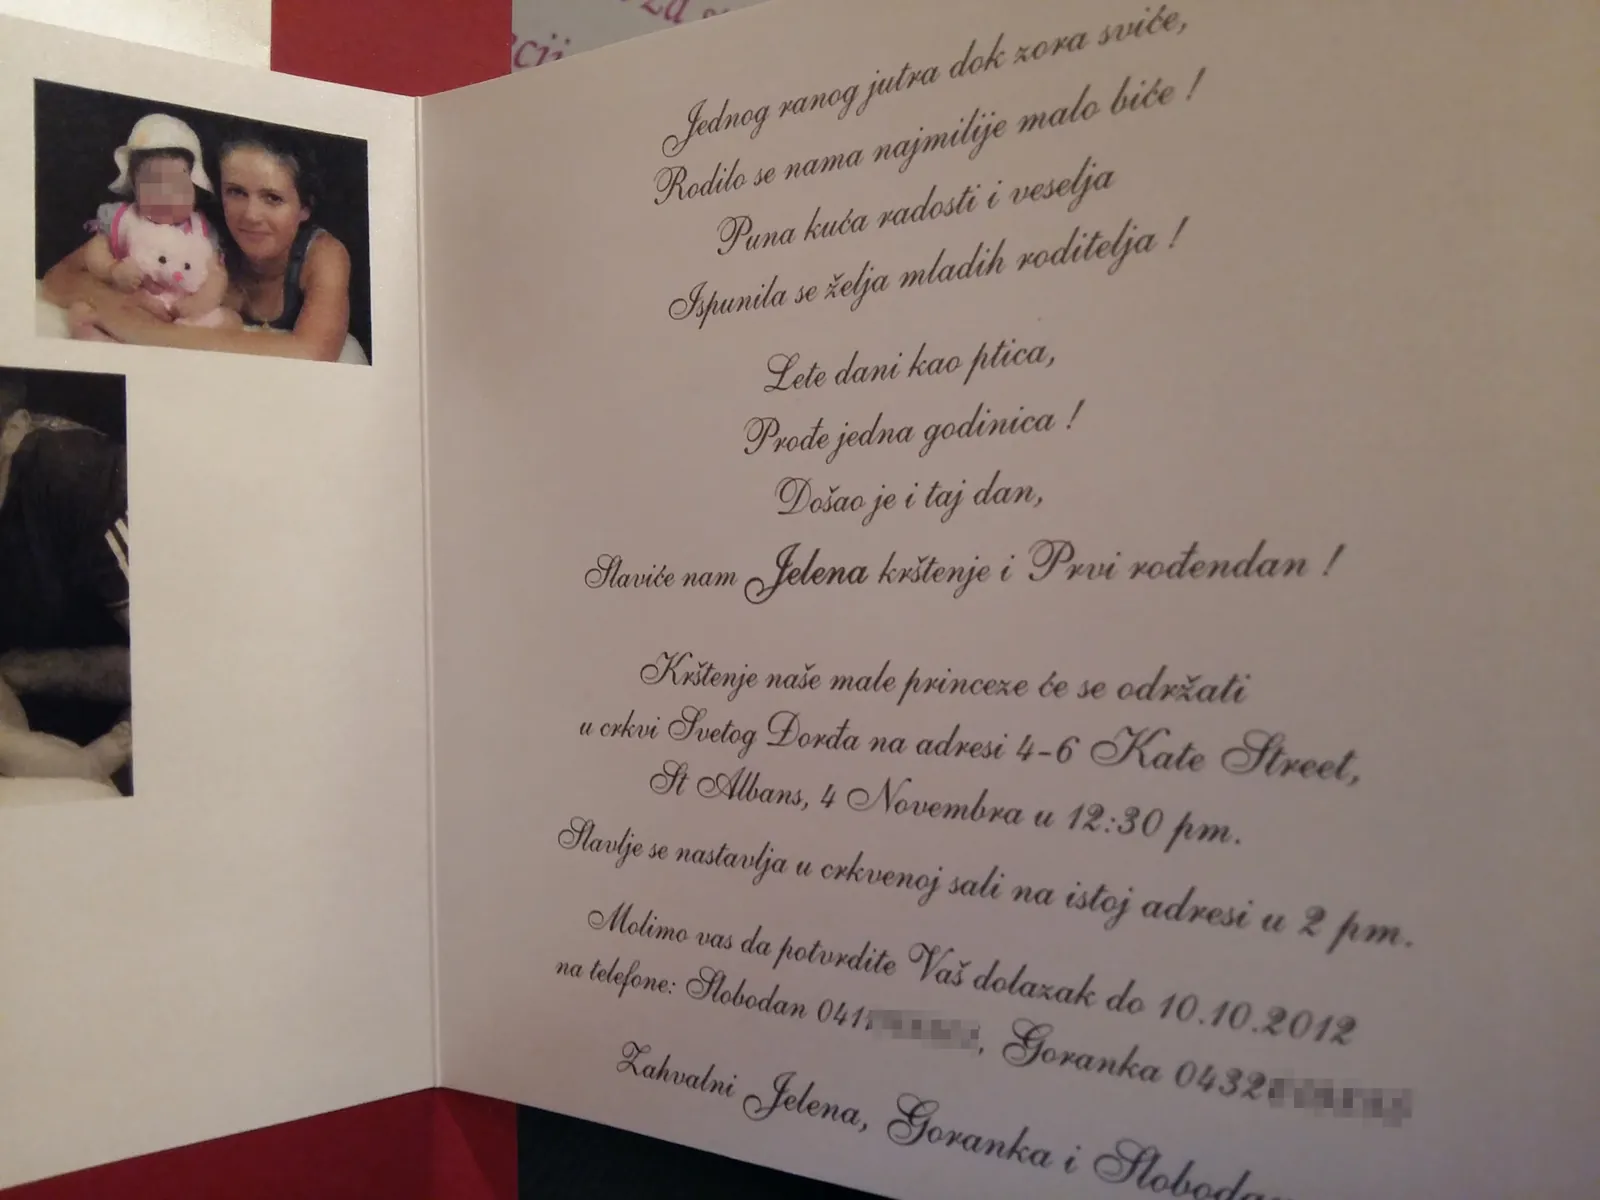 za
Jednog ranog jutra dok zora sviće,
Rodilo se nama najmilije malo biće !
Puna kuća radosti i veselja
Ispunila se želja mladih roditelja !
Lete dani kao ptica,
Prođe jedna godinica !
Došao je i taj dan,
Slaviće nam Jelena krštenje i Prvi rođendan !
Krštenje naše male princeze će se održati
u crkvi Svetog Đorđa na adresi 4-6 Kate Street,
St Albans, 4 Novembra u 12:30 pm.
Slavlje se nastavlja u crkvenoj sali na istoj adresi u 2 pm.
Molimo vas da potvrdite Vaš dolazak do 10.10.2012
na telefone: Slobodan 041 , Goranka 0432
Zahvalni Jelena, Goranka i Slobodan